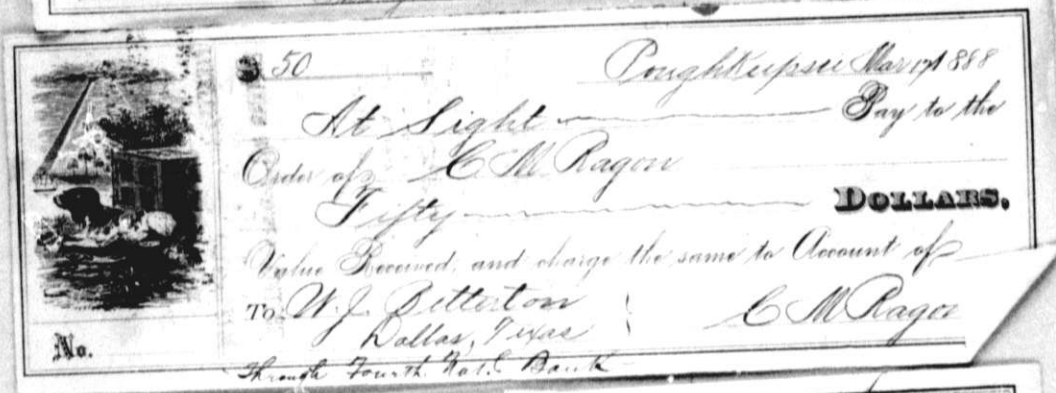 $ 50 Poughkeepsie Mar 17 1888
At Sight Pay to the
Order of C M Ragon
Fifty DOLLARS.
Value Received, and charge the same to Account of
To W. J. Betterton C M Ragon
Dallas, Texas
No.
Through Fourth Nat. Bank